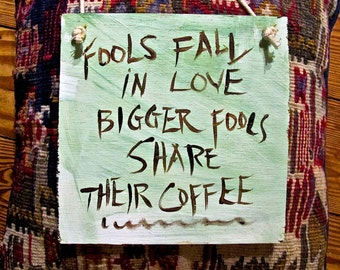 FOOLS FALL
IN LOVE
BIGGER FOOLS
SHARE
THEIR COFFEE